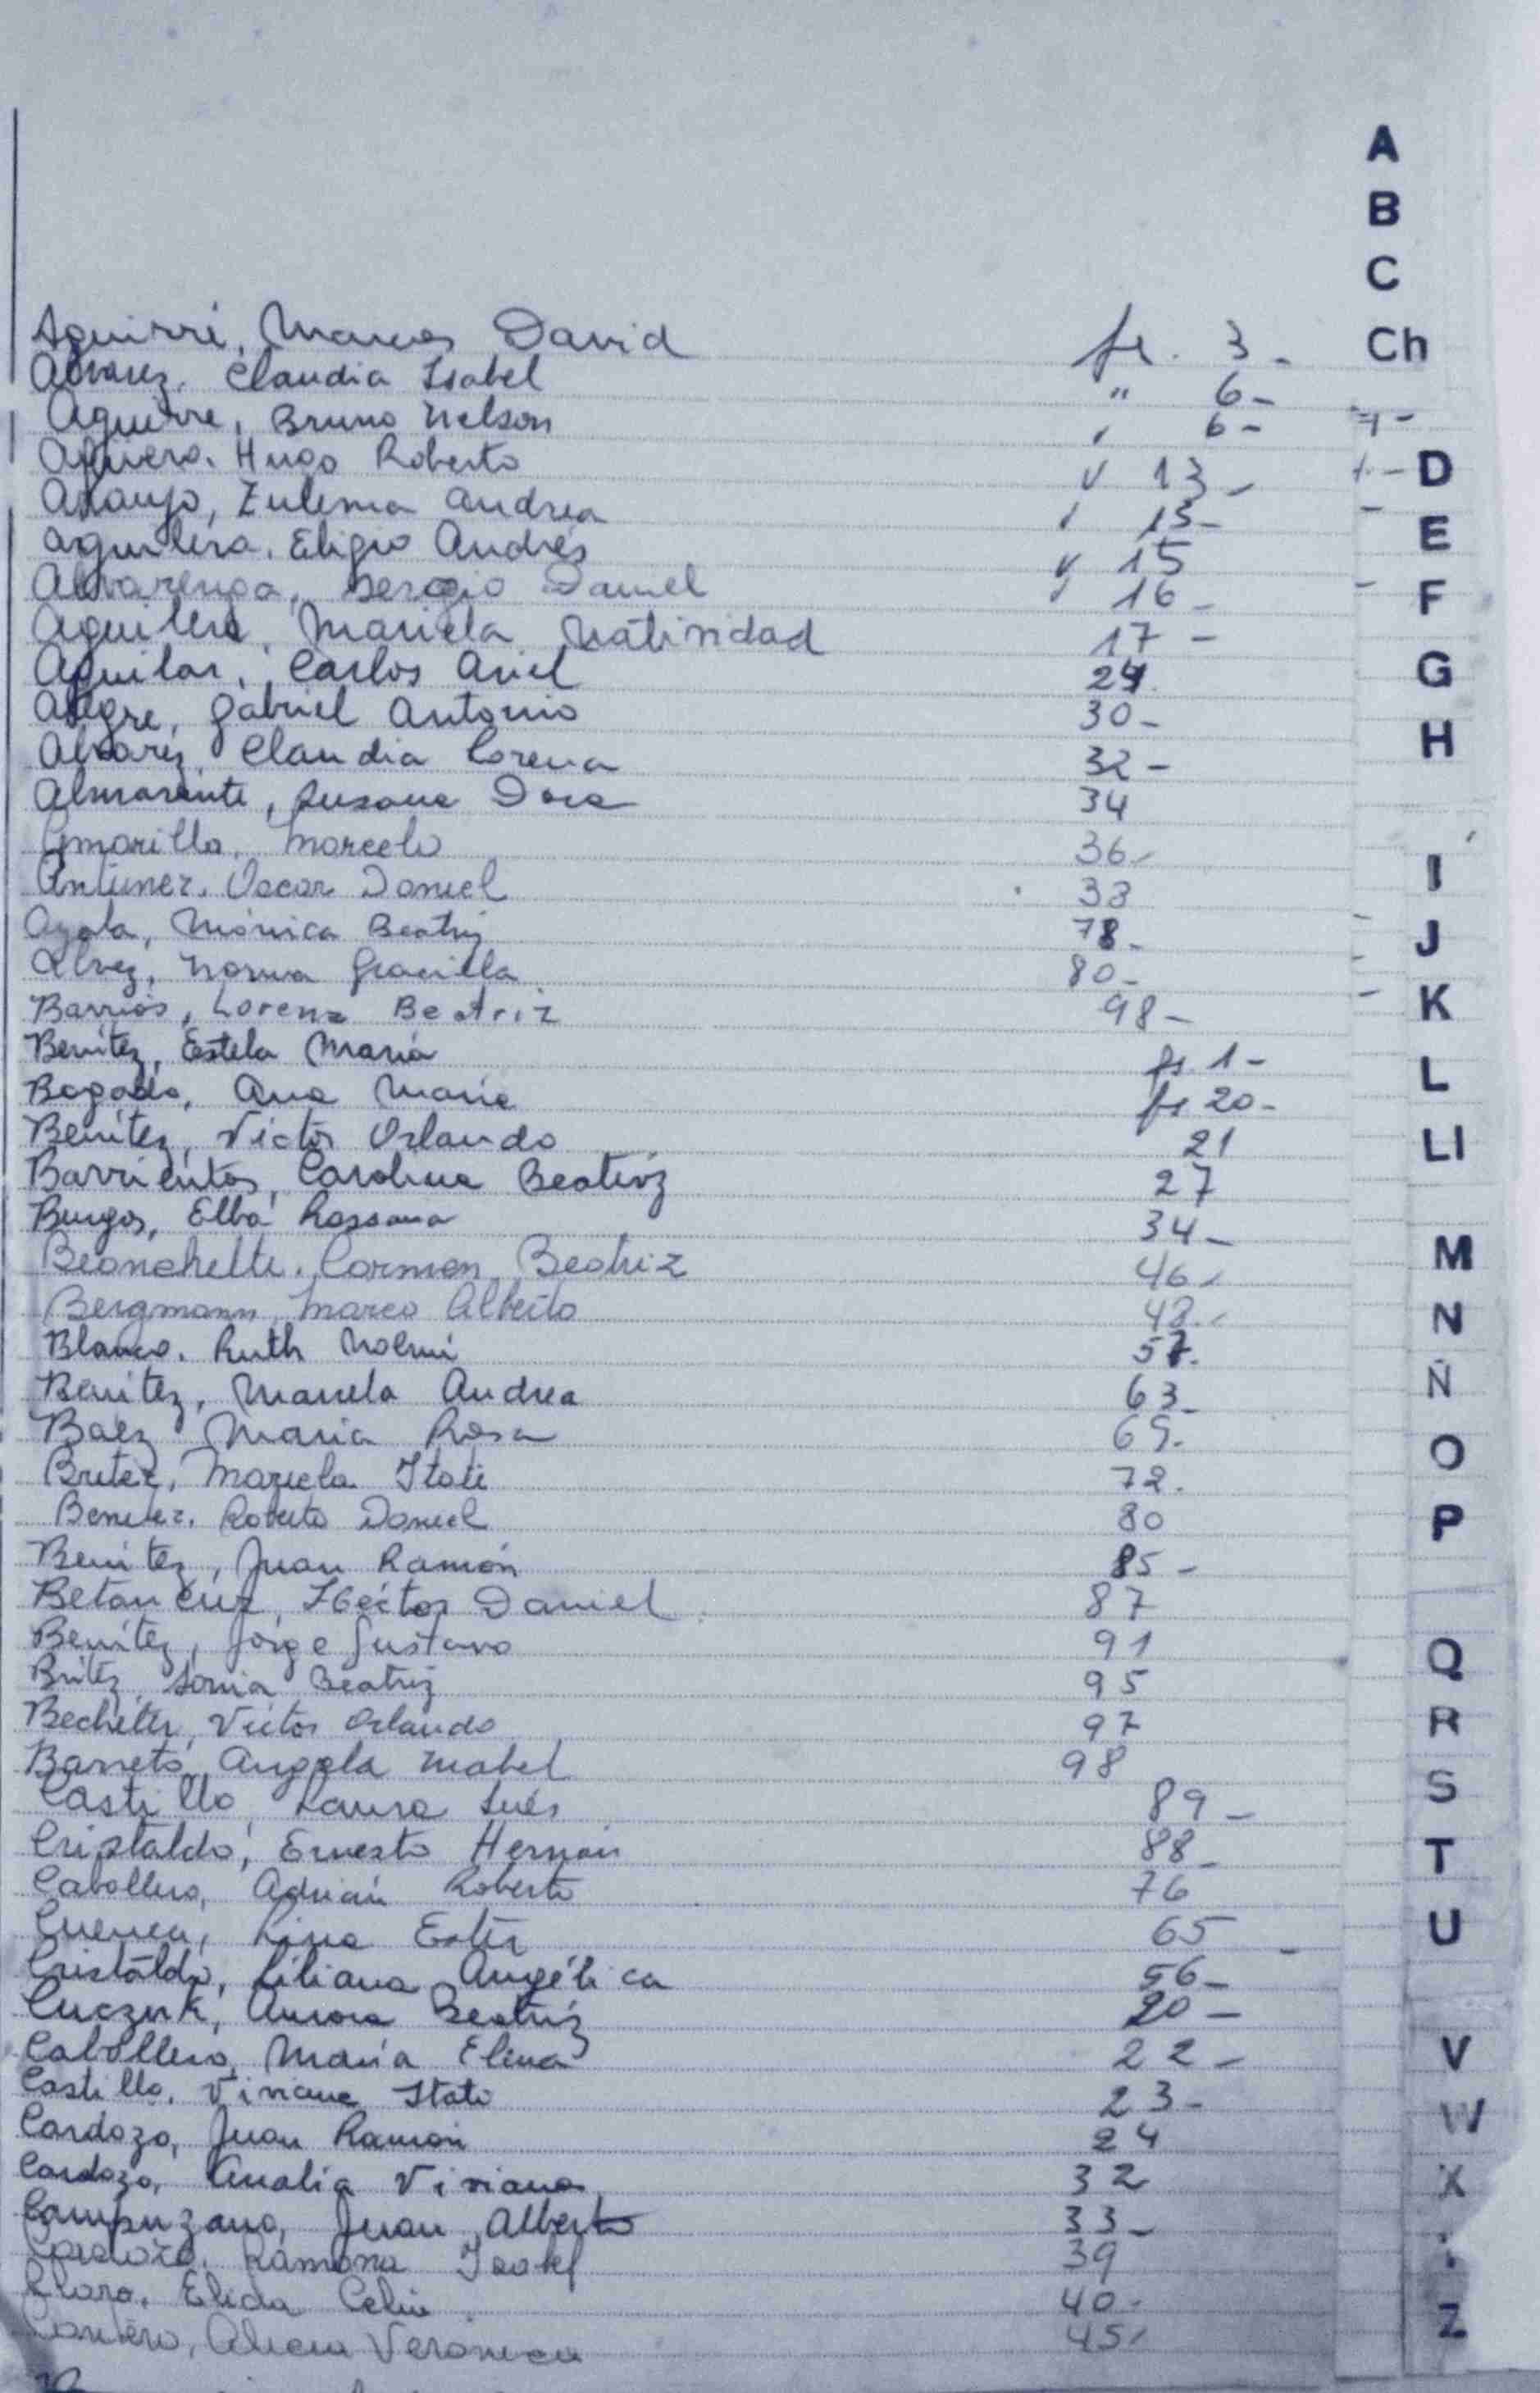 Aguirre, Marcos David fs. 3-
Alvarez, Claudia Isabel " 6-
Aguirre, Bruno Nelson 6-
Aguero. Hugo Roberto 13-
Araujo, Zulema Andrea 13-
Aguilera. Eligio Andrés 15
Alvarenga, Sergio Daniel 16-
Aguilera, Mariela Natividad 17-
Aguilar, Carlos Ariel
Alegre, Gabriel Antonio 30-
Alvarez, Claudia Lorena 32-
Almarante, Susana Dora 34
Amarilla, Marcelo 36-
Antunez. Oscar Daniel 38
Ayala, Mónica Beatriz 78-
Alvez, Norma Graciela 80-
Barrios, Lorena Beatriz 98-
Benítez, Estela María fs. 1-
Bogado, Ana María fs 20-
Benítez, Victor Orlando 21
Barrientos, Carolina Beatriz 27
Burgos, Elba Rossana 34-
Carmen Beatriz 46-
Bergmann, Marco Alberto 48.-
Blanco. Ruth Noemí 57.
Benítez, Mariela Andrea 63-
Baez, María Rosa 69.
Britez, Mariela Itatí 72.
Benitez. Roberto Daniel 80
Benítez, Juan Ramón 85-
Betancur, Héctor Daniel 87
Benítez, Jorge Gustavo 91
Britez, Sonia Beatriz 95
Victor Orlando 97
Barreto, Angela Mabel 98
Castillo, Laura Inés 89-
Cristaldo, Ernesto Hernán 88-
Caballero, Adrián Roberto 76
Cuenca, Lina Ester 65
Cristaldo, Liliana Angélica 56-
Cuczuk, Aurora Beatriz 20-
Caballero, María Elina 22-
Castillo, Viviana Itatí 23-
Cardozo, Juan Ramón 24
Cardozo, Analia Viviana 32
Campuzano, Juan Alberto 33-
Cardozo. Ramona Isabel 39
Elida Celia 40-
Alicia Verónica 45-
A
B
C
Ch
D
E
F
G
H
I
J
K
L
Ll
M
N
Ñ
O
P
Q
R
S
T
U
V
W
X
Z